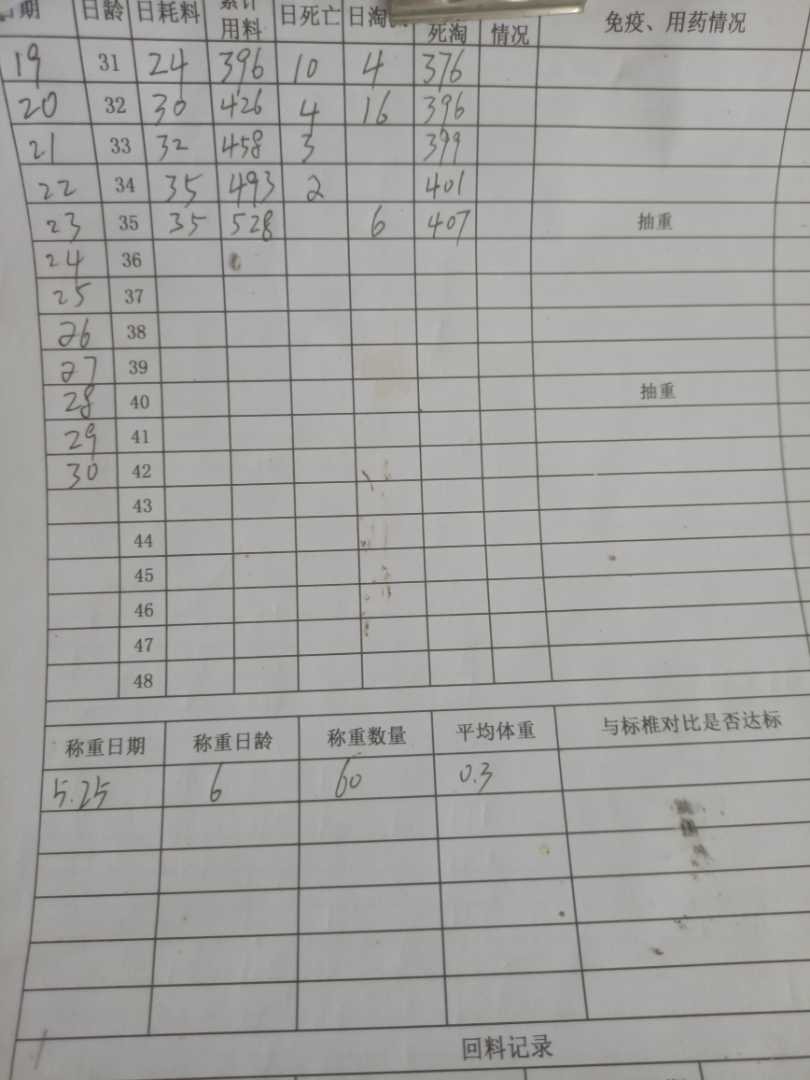 期 日龄 日耗料 累计用料 日死亡 日淘 死淘 情况 免疫、用药情况
19 31 24 396 10 4 376
20 32 30 426 4 16 396
21 33 32 458 3 399
22 34 35 493 2 401
23 35 35 528 6 407 抽重
24 36
25 37
26 38
27 39
28 40 抽重
29 41
30 42
43
44
45
46
47
48
称重日期 称重日龄 称重数量 平均体重 与标椎对比是否达标
5.25 6 60 0.3
回料记录